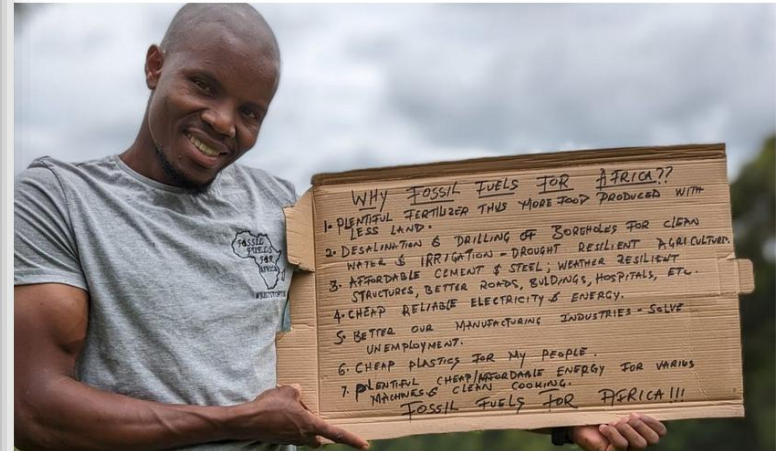 FOSSIL
FUELS
FOR
AFRICA
WHY FOSSIL FUELS FOR AFRICA??
1. PLENTIFUL FERTILIZER THUS MORE FOOD PRODUCED WITH
LESS LAND.
2. DESALINATION & DRILLING OF BOREHOLES FOR CLEAN
WATER & IRRIGATION - DROUGHT RESILIENT AGRICULTURE.
3. AFFORDABLE CEMENT & STEEL; WEATHER RESILIENT
STRUCTURES, BETTER ROADS, BULDINGS, HOSPITALS, ETC.
4. CHEAP RELIABLE ELECTRICITY & ENERGY.
5. BETTER OUR MANUFACTURING INDUSTRIES - SOLVE
UNEMPLOYMENT.
6. CHEAP PLASTICS FOR MY PEOPLE.
7. PLENTIFUL CHEAP/AFFORDABLE ENERGY FOR VARIUS
MACHINES & CLEAN COOKING.
FOSSIL FUELS FOR AFRICA!!!